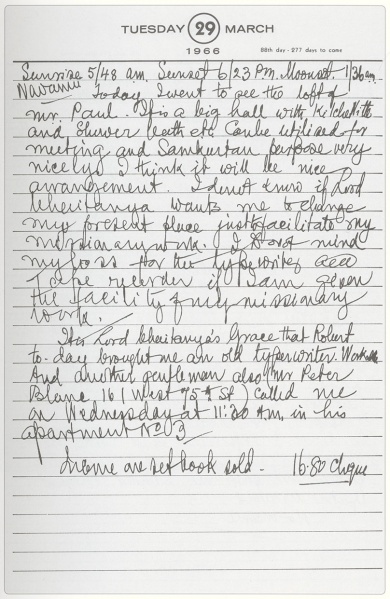 TUESDAY 29 MARCH
1966 88th day - 277 days to come
Sunrise 5/48 am. Sunset 6/23 P.M. Moonset. 1/36 am.
Navami Today I went to see the loft of
mr. Paul. It is a big hall with Kitchette
and Shower bath etc. Can be utilised for
meeting and Sankirtan purpose very
nicely. I think it will be nice
arrangement. I do not know if Lord
Chaitanya wants me to change
my present place just to facilitate my
missionary work. I do not mind
my loss for the typewriter and
Tape recorder if I am given
the facility of my missionary
work.
It is Lord Chaitanya's Grace that Robert
to-day brought me an old typewriter.
And another gentleman also (Mr Peter
Blanc 161 West 75th St) called me
on Wednesday at 11:30 A.m. in his
apartment No 3
Income one set book sold. - 16.80 cheque